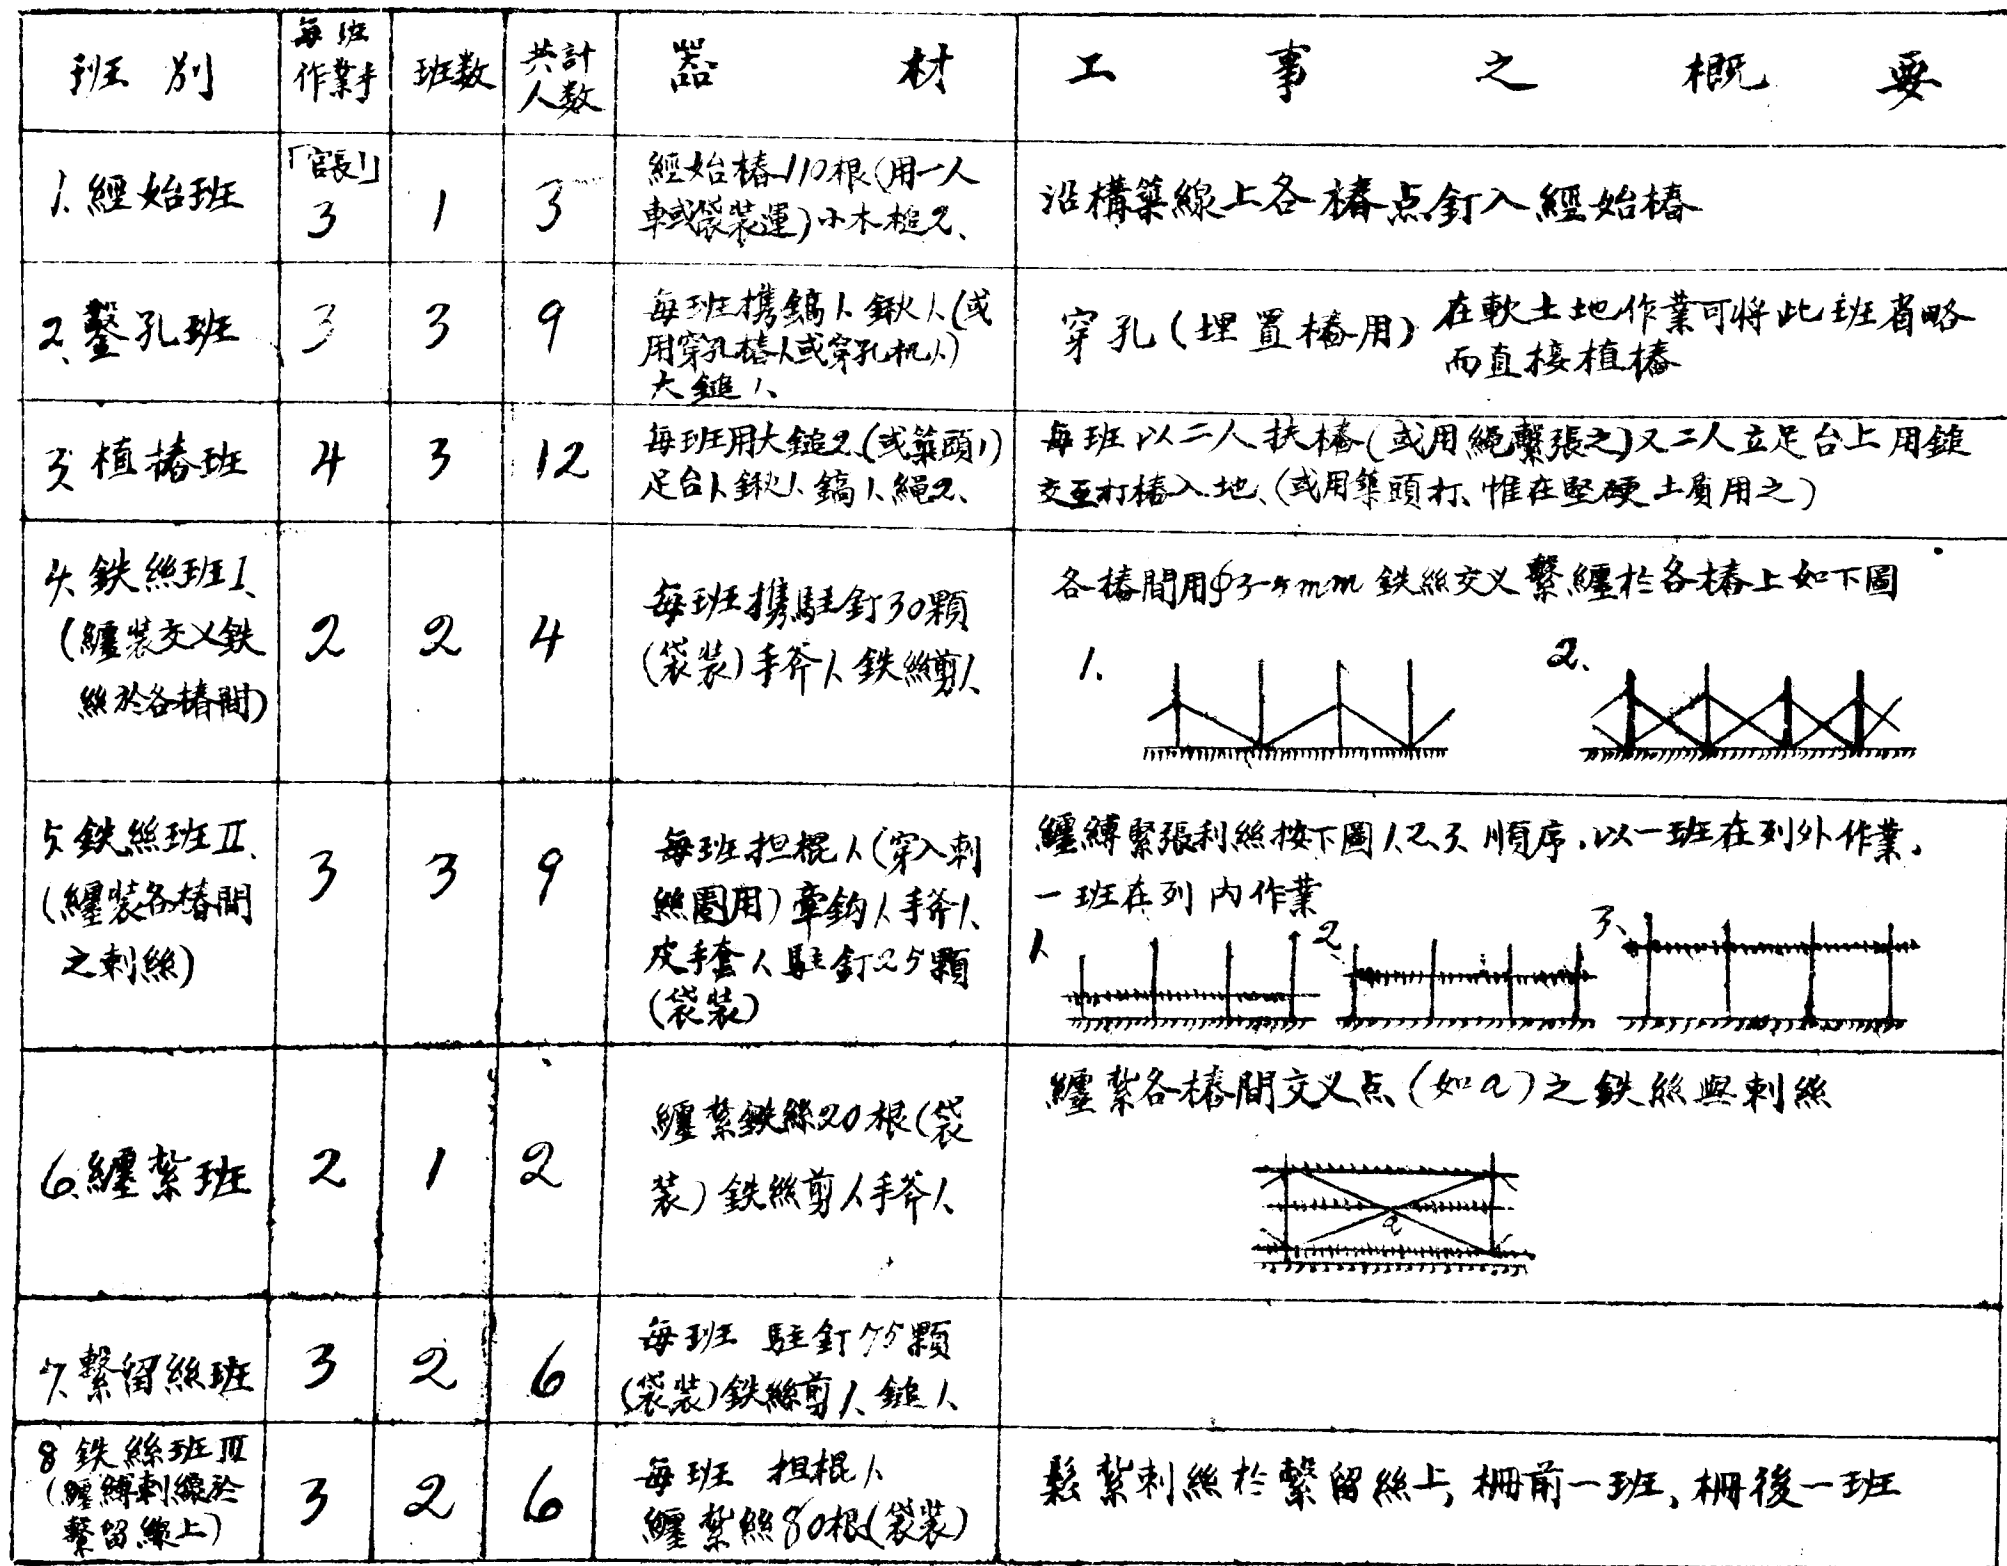 班別
每班
作業手
班数
共計
人数
器材
工事之概要
1.經始班
「官長1」
3
1
3
經始樁110根(用一人
車或袋裝運)小木槌2、
沿構築線上各樁点釘入經始樁
2.鑿孔班
3
3
9
每班携鎬1、鍬1、(或
用穿孔樁1、或穿孔机1、)
大鎚1、
穿孔(埋置樁用)
在軟土地作業可將此班省略
而直接植樁
3.植樁班
4
3
12
每班用大鎚2、(或築頭1)
足台1、鍬1、鎬1、繩2、
每班以二人扶樁(或用繩繫張之)又二人立足台上用鎚
交互打樁入地、(或用築頭打、惟在堅硬土質用之)
4.鉄絲班I、
(纏裝交义鉄
絲於各樁間)
2
2
4
每班携駐釘30顆
(袋裝)手斧1、鉄絲剪1、
各樁間用φ3-4mm鉄絲交义繫纏於各樁上如下圖
1、
2、
5.鉄絲班II、
(纏裝各樁間
之刺絲)
3
3
9
每班担棍1、(穿入刺
絲圈用)牽鈎1、手斧1、
皮手套1、駐釘25顆
(袋裝)
纏縛緊張刺絲按下圖1、2、3、順序,以一班在列外作業,
一班在列内作業
1、
2、
3、
6.纏紮班
2
1
2
纏紮鉄絲20根(袋
裝)鉄絲剪1、手斧1、
纏紮各樁間交义点(如a)之鉄絲與刺絲
a
7.繫留絲班
3
2
6
每班 駐釘75顆
(袋裝)鉄絲剪1、鎚1、
8鉄絲班III
(纏縛刺線於
繫留線上)
3
2
6
每班 担棍1、
纏紮絲80根(袋裝)
鬆紮刺絲於繫留絲上,柵前一班,柵後一班